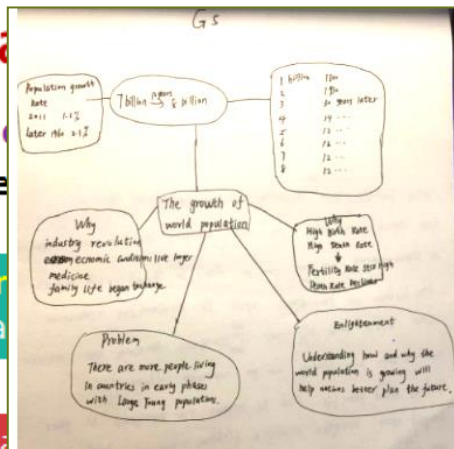 G5
Population growth
Rate
2011 1.1%
later 1960 2.1%
7 billion 12 years 8 billion
1 billion 1800
2 1930
3 30 years later
4 14 ...
5 12 ...
6 12 ...
7 12 ...
8 12 ...
The growth of
world population
Why
industry revolution
economic conditions live longer
medicine
family life began to change
Why
High Birth Rate
High Death Rate
Fertility Rate still High
Death Rate Declined
Problem
There are more people living
in countries in early phases
with Large Young population.
Enlightenment
Understanding how and why the
world population is growing will
help nations better plan the future.